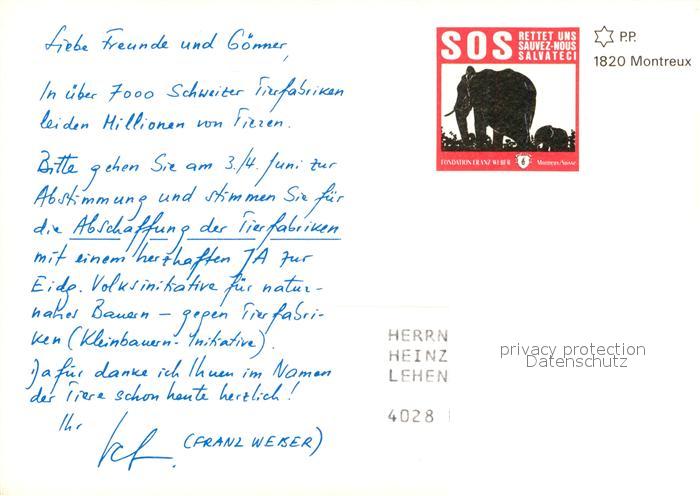 Liebe Freunde und Gönner,
In über 7000 Schweizer Tierfabriken
leiden Millionen von Tieren.
Bitte gehen Sie am 3./4. Juni zur
Abstimmung und stimmen Sie für
die Abschaffung der Tierfabriken
mit einem herzhaften JA zur
Eidg. Volksinitiative für natur-
nahes Bauern – gegen Tierfabri-
ken (Kleinbauern-Initiative).
Dafür danke ich Ihnen im Namen
der Tiere schon heute herzlich!
Ihr
(FRANZ WEBER)
SOS RETTET UNS
SAUVEZ-NOUS
SALVATECI
FONDATION FRANZ WEBER 6 Montreux/Suisse
P.P.
1820 Montreux
HERRN
HEINZ
LEHEN
4028
privacy protection
Datenschutz